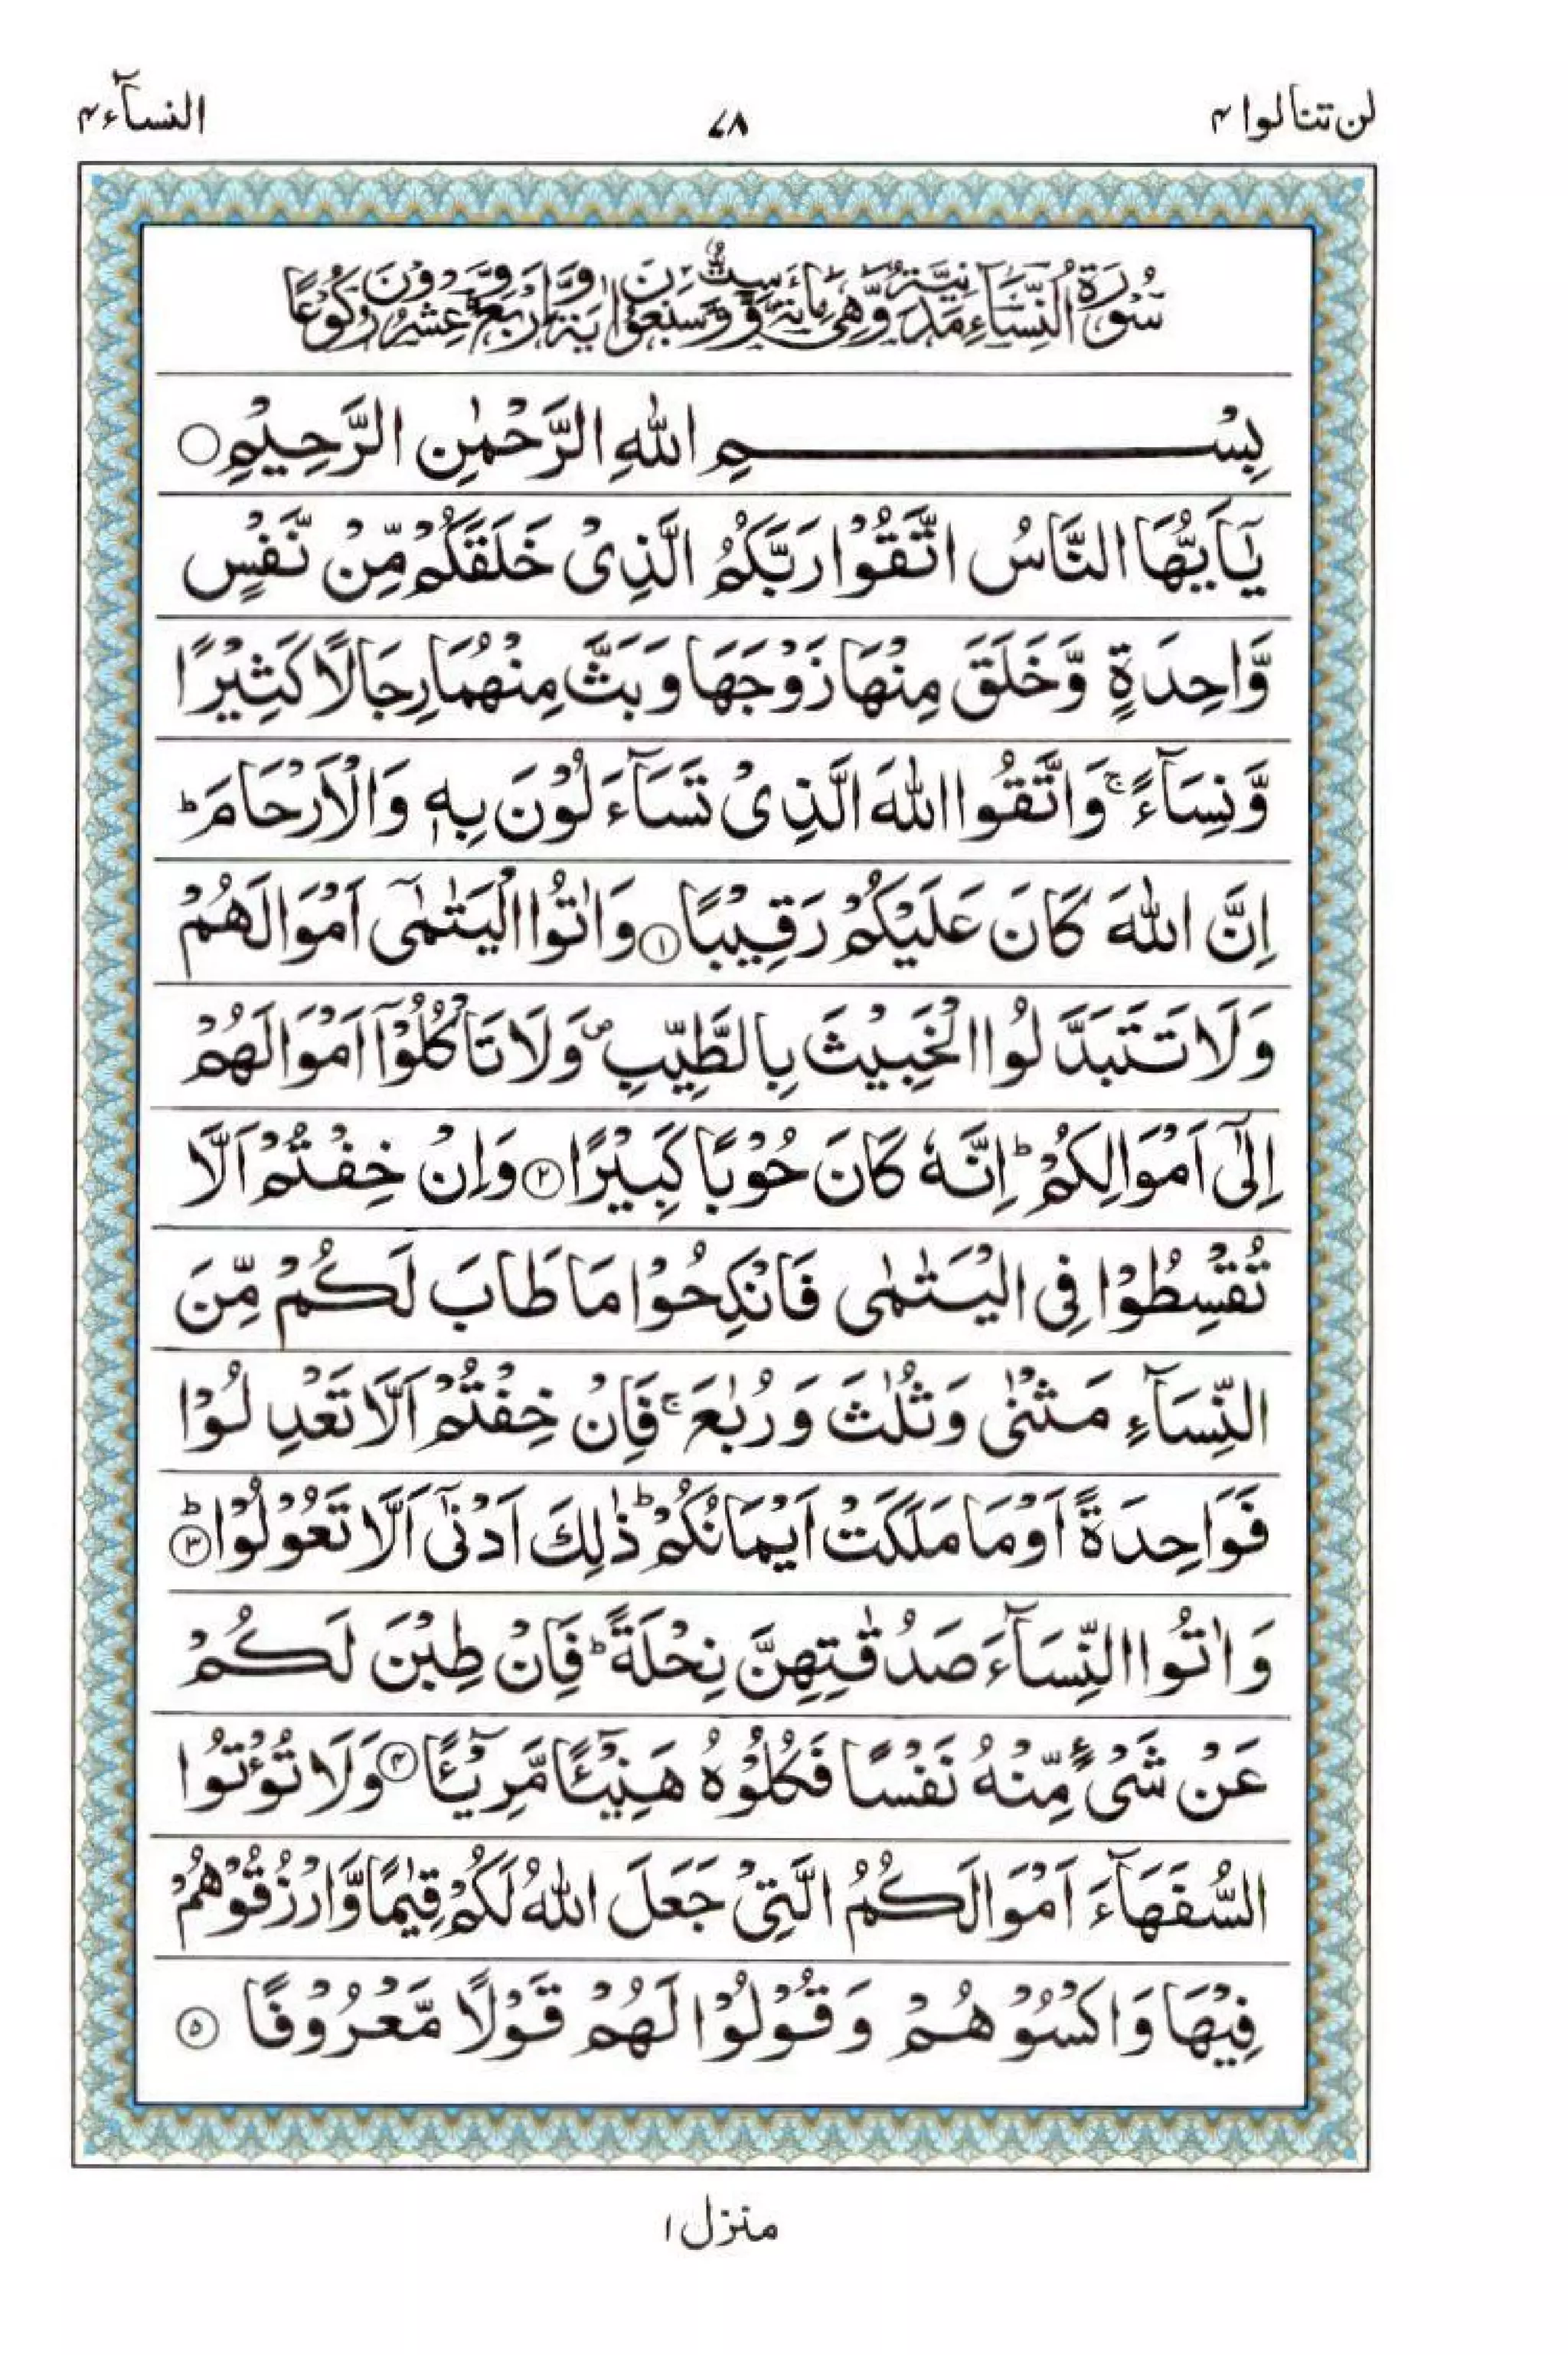 لن تنالوا ۴
۷۸
النسآء ۴
سُوْرَةُ النِّسَآءِ مَدَنِيَّةٌ وَّهِىَ مِائَةٌ وَّسِتٌّ وَّسَبْعُوْنَ اٰيَةً وَّاَرْبَعٌ وَّعِشْرُوْنَ رُكُوْعًا
بِسْمِ اللّٰهِ الرَّحْمٰنِ الرَّحِيْمِ ○
يٰۤاَيُّهَا النَّاسُ اتَّقُوْا رَبَّكُمُ الَّذِىْ خَلَقَكُمْ مِّنْ نَّفْسٍ
وَّاحِدَةٍ وَّخَلَقَ مِنْهَا زَوْجَهَا وَبَثَّ مِنْهُمَا رِجَالًا كَثِيْرًا
وَّنِسَآءً ۚ وَاتَّقُوا اللّٰهَ الَّذِىْ تَسَآءَلُوْنَ بِهٖ وَالْاَرْحَامَ ؕ
اِنَّ اللّٰهَ كَانَ عَلَيْكُمْ رَقِيْبًا ۝۱ وَاٰتُوا الْيَتٰمٰٓى اَمْوَالَهُمْ
وَلَا تَتَبَدَّلُوا الْخَبِيْثَ بِالطَّيِّبِ ۖ وَلَا تَاْكُلُوْۤا اَمْوَالَهُمْ
اِلٰٓى اَمْوَالِكُمْ ؕ اِنَّهٗ كَانَ حُوْبًا كَبِيْرًا ۝۲ وَاِنْ خِفْتُمْ اَلَّا
تُقْسِطُوْا فِى الْيَتٰمٰى فَانْكِحُوْا مَا طَابَ لَكُمْ مِّنَ
النِّسَآءِ مَثْنٰى وَثُلٰثَ وَرُبٰعَ ۚ فَاِنْ خِفْتُمْ اَلَّا تَعْدِلُوْا
فَوَاحِدَةً اَوْ مَا مَلَكَتْ اَيْمَانُكُمْ ؕ ذٰلِكَ اَدْنٰٓى اَلَّا تَعُوْلُوْا ؕ۝۳
وَاٰتُوا النِّسَآءَ صَدُقٰتِهِنَّ نِحْلَةً ؕ فَاِنْ طِبْنَ لَكُمْ
عَنْ شَىْءٍ مِّنْهُ نَفْسًا فَكُلُوْهُ هَنِيْٓـئًا مَّرِيْٓـئًا ۝۴ وَلَا تُؤْتُوا
السُّفَهَآءَ اَمْوَالَكُمُ الَّتِىْ جَعَلَ اللّٰهُ لَكُمْ قِيٰمًا وَّارْزُقُوْهُمْ
فِيْهَا وَاكْسُوْهُمْ وَقُوْلُوْا لَهُمْ قَوْلًا مَّعْرُوْفًا ۝۵
منزل ۱